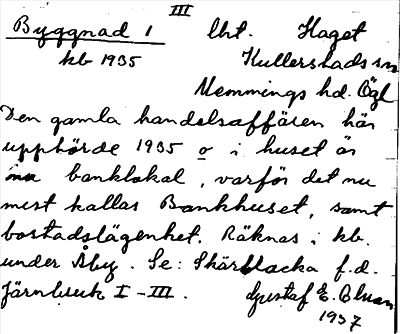 III
Byggnad 1 lht. Haget
kb 1935 Kullerstads sn
Memmings hd. Ögl
Den gamla handelsaffären här
upphörde 1935 o i huset är
nu banklokal, varför det nu
mest kallas Bankhuset, samt
bostadslägenhet. Räknas i kb.
under Åby. Se: Skärblacka f.d.
Järnbruk I-III. Gustaf E.
1937